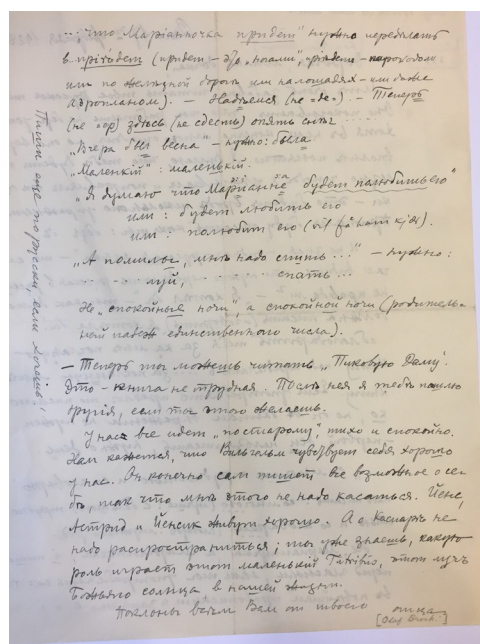 ...: "что Маріанночка придет" нужно передѣлать
в пріѣдет (придет – это "ногами", пріѣдет – пароходом
или по желѣзной дорогѣ или на лошадях – или даже
аэропланом). – Надѣемся (не "де"). – Теперь
(не "ѣр) здѣсь (не сдесть) опять снѣг
"Вчера был весна" – нужно: была
"Маленкій": маленькій.
"Я думаю что Маріаннѣ будет полюбить его"
или: будет любить его
или: полюбит его (vil få ham kjær).
"А помилог, мнѣ надо спить..." – нужно:
луй, спать...
Не "спокойные ночи" а спокойной ночи (родитель-
ный падеж единственнаго числа).
– Теперь ты можешь читать "Пиковую Даму".
Это – книга не трудная. Послѣ нея я тебѣ пошлю
другія, если ты этого желаешь.
У нас все идет "постарому", тихо и спокойно.
Нам кажется, что Вильгельм чувствует себя хорошо
у нас. Он конечно сам пишет все возможное о се-
бѣ, так что мнѣ этого не надо касаться. Йенс,
Астрид и Йенсик живут хорошо. А о Каспарѣ не
надо распространиться; ты уже знаешь, какую
роль играет этот маленькій этот луч
Божьяго солнца, в нашей жизни.
Поклоны всѣм Вам от твоего отца
[Olaf Broch]
Пиши еще по русски, если хочешь!